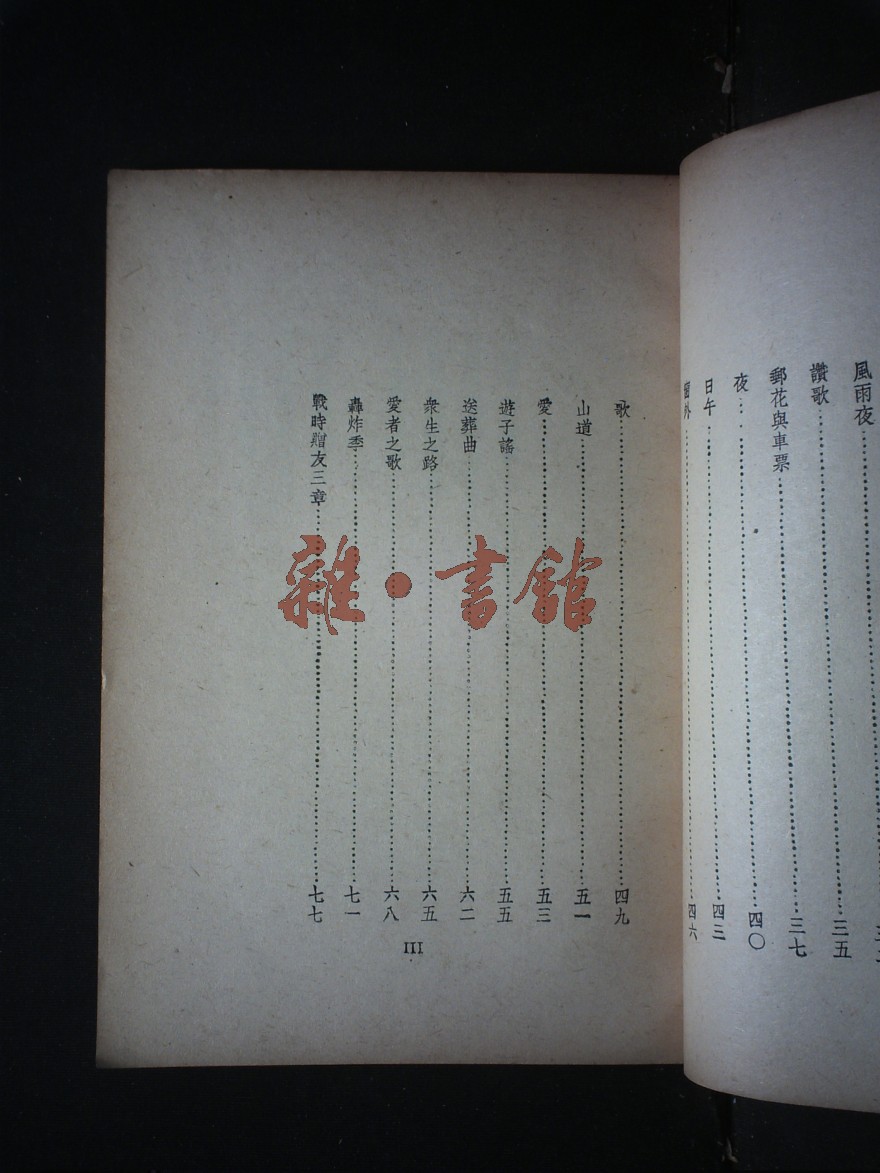 風雨夜
讚歌………三五
郵花與車票………三七
夜………四〇
日午………四三
窗外………四六
歌………四九
山道………五一
愛………五三
遊子謠………五五
送葬曲………六二
衆生之路………六五
愛者之歌………六八
轟炸季………七一
戰時贈友三章………七七
III
雜·書館